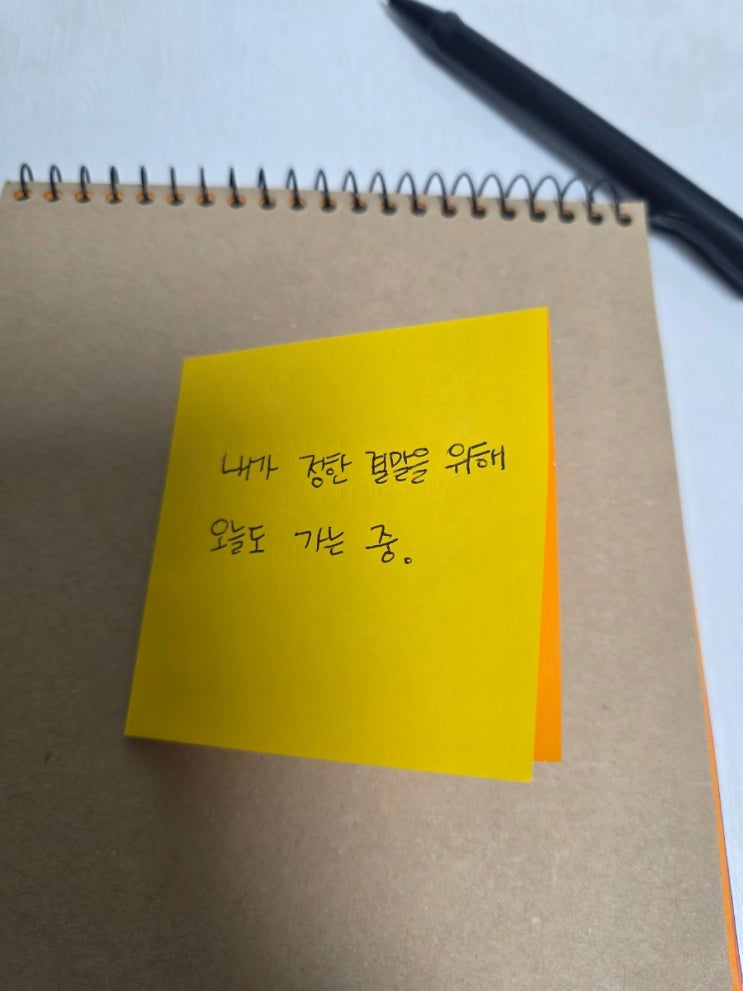 내가 정한 결말을 위해
오늘도 가는 중.